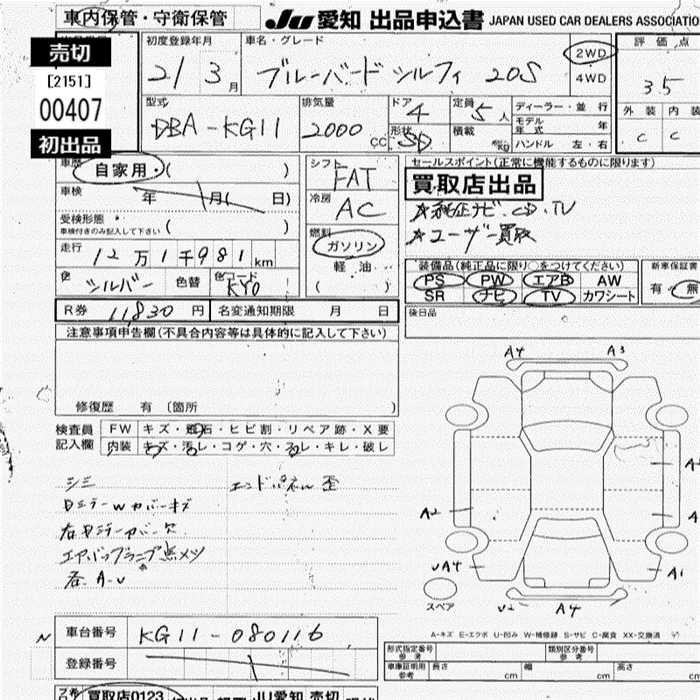 車内保管・守衛保管
JU愛知 出品申込書 JAPAN USED CAR DEALERS ASSOCIATIO
売切
[2151]
00407
初出品
初度登録年月
21 3月
車名・グレード
ブルーバード シルフィ 20S
2WD
4WD
評価点
3.5
外装 内装
C C
型式
DBA-KG11
排気量
2000 CC
ドア 4
形状 SD
定員 5人
積載 kg
ディーラー・並行
モデル年式 年
ハンドル 左・右
車歴
自家用・( )
車検 年 月( 日)
受検形態
車検付きのみ記入して下さい ( )
走行 12万1千981km
色 シルバー 色替 色コード KY0
シフト FAT
冷房 AC
燃料
ガソリン
軽油
( )
セールスポイント(正常に機能するものに限ります)
買取店出品
★純正ナビ・CD・TV
★ユーザー買取
装備品(純正品に限り○をつけてください)
PS PW エアB AW
SR ナビ TV カワシート
新車保証書
有・無
R券 11830円 名変通知期限 月 日
後日品
注意事項申告欄(不具合内容等は具体的に記入して下さい)
修復歴 有 〔箇所 〕
検査員記入欄
FW キズ・飛石・ヒビ割・リペア跡・X要
内装 キズ・汚レ・コゲ・穴・スレ・キレ・破レ
シミ エンドパネル歪
Dミラー W カバーキズ
右Dミラーカバー欠
エアバックランプ点メツ
各A-U
A4 A3
A2
A
UA4
A1
U2 A4
スペア
A-キズ E-エクボ U-凹み W-補修跡 S-サビ C-腐食 XX-交換済
車台番号 KG11-080116
登録番号
形式指定番号 参考
類別区分番号 参考
車庫証明用 参考 長さ cm 幅 cm 高さ
買取店0123
JU愛知 売切